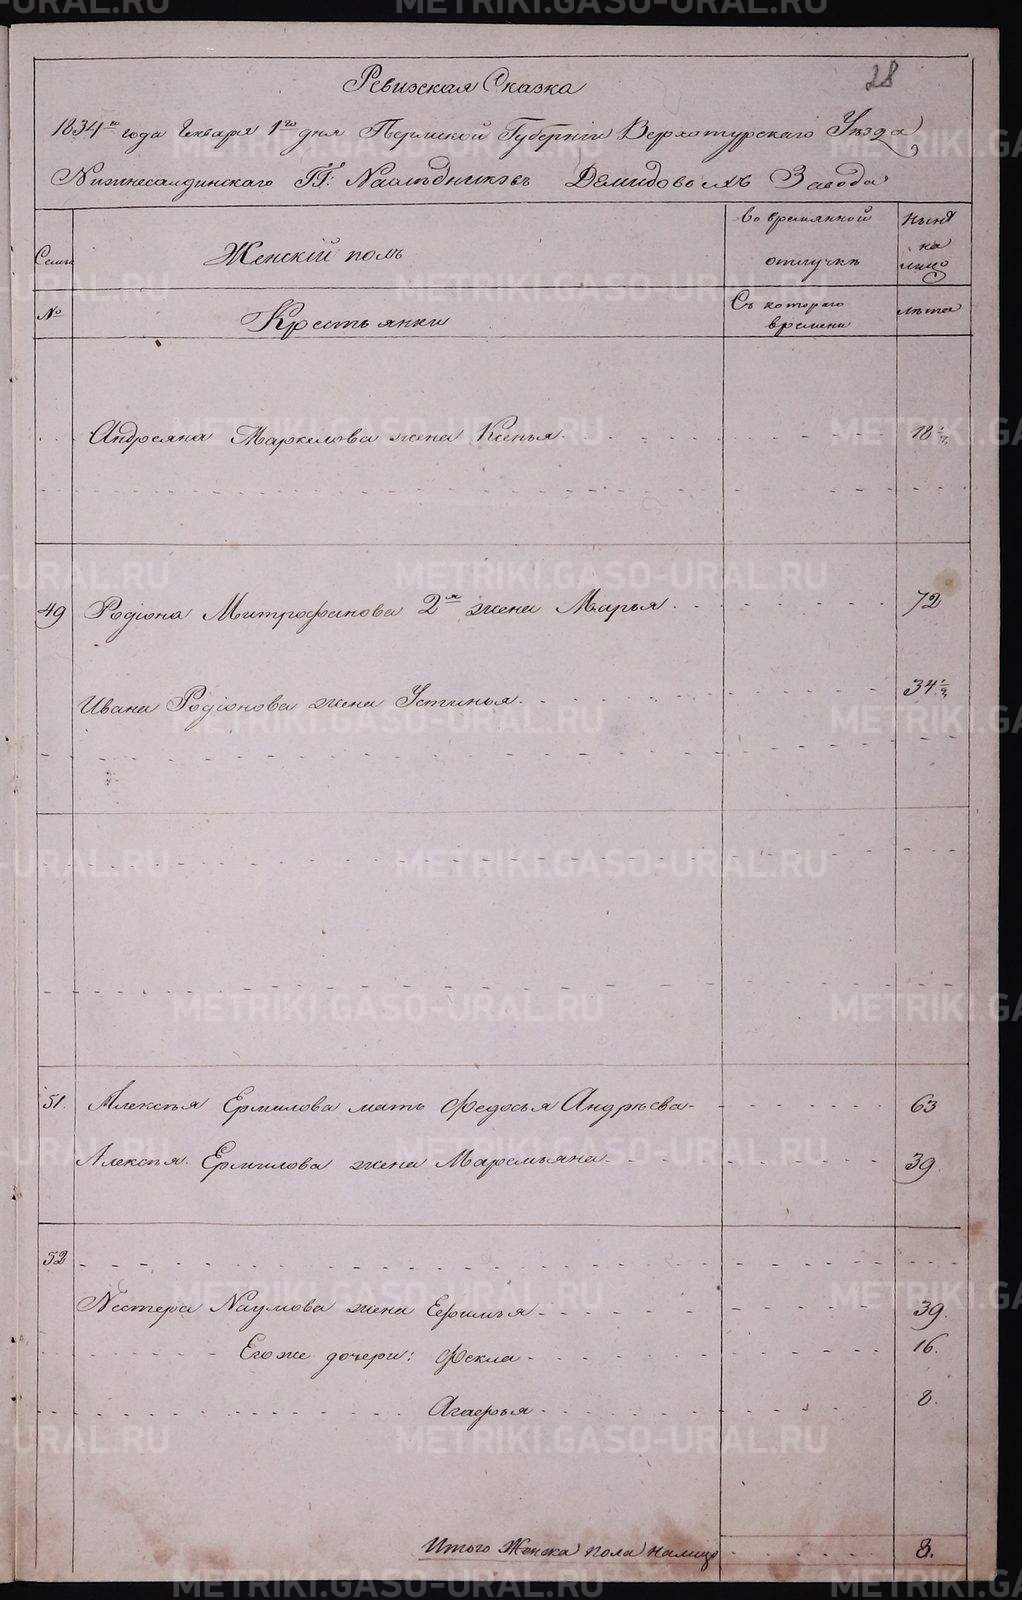 28
Ревизская Сказка
1834го года Генваря 1го дня Пермской Губернiи Верхотурскаго Уезда
Нижнесалдинскаго ГГ: Наследниковъ Демидовыхъ Завода
во времянной
ныне
на
лицо
Семьи
Женскiй полъ
отлучке
№
Крестьянки
Съ котораго
времени
лета
Андреяна Маркелова жена Ксенья 18 1/2
49 Родiона Митрофанова 2я жена Марья 72
Ивана Родiонова жена Устинья 34 1/2
51. Алексея Ермилова мать Федосья Андреева 63
Алексея Ермилова жена Маремьяна 39.
52
Нестера Наумова жена Ефимья 39.
Его же дочери: Фекла 16.
Агафья 8.
Итого Женска пола налицо 8.
METRIKI.GASO-URAL.RU